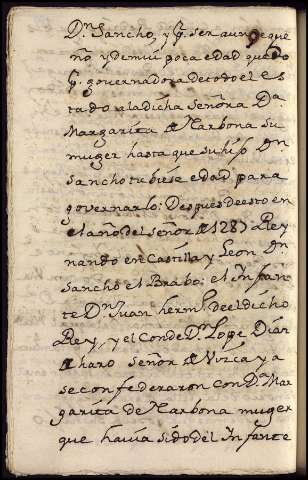 Dn. Sancho, y q. ser aun peque
ño, y de mui poca edad quedo
p. governadora de todo el es
tado a la dicha Señora Da.
Margarita de Narbona su
muger hasta que su hijo Dn.
Sancho tubiese edad para
governarlo: Despues de esto en
el año del señor de 1287 Rey
nando en Castilla y Leon Dn.
Sancho el Brabo: el Infan
te Dn. Juan herm. de el dicho
Rey, y el Conde Dn. Lope Diaz
de haro Señor de Vizcaya
se confederaron con Da. Mar
garita de Narbona muger
que havia sido del Infante